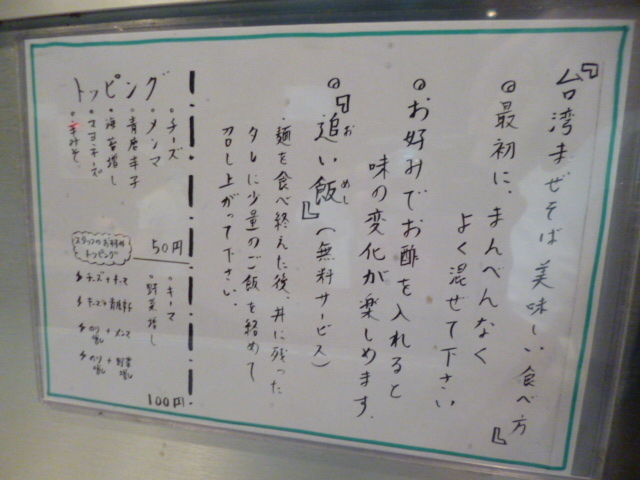 『台湾まぜそば 美味しい食べ方』
◎最初に、まんべんなく
よく混ぜて下さい
◎お好みでお酢を入れると
味の変化が楽しめます。
◎『追い飯』(無料サービス)
お めし
・麺を食べ終えた後、丼に残った
タレに少量のご飯を絡めて
召し上がって下さい。
トッピング
・チーズ
・メンマ
・青唐辛子
・海苔増し
・マヨネーズ
・辛みそ
50円
・キーマ
・野菜増し
100円
スタッフのお好み
トッピング
チーズ+キーマ
キーマ+青唐辛子
のり増し+メンマ
のり増し+野菜増し